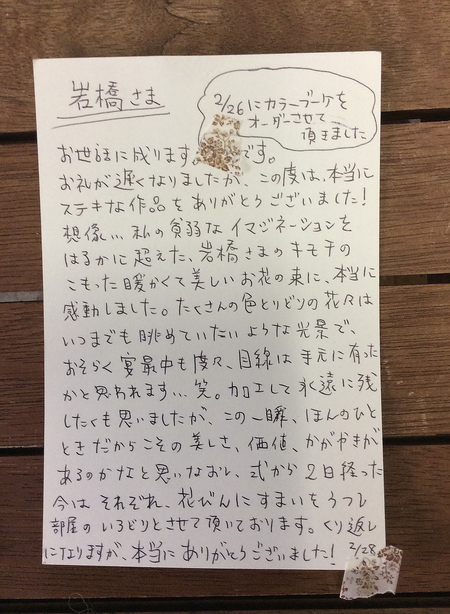 岩橋さま
2/26にカラーブーケを
オーダーさせて
頂きました
お世話に成ります。です。
お礼が遅くなりましたが、この度は、本当に
ステキな作品をありがとうございました！
想像…私の貧弱なイマジネーションを
はるかに超えた、岩橋さまのキモチの
こもった暖かくて美しいお花の束に、本当に
感動しました。たくさんの色とりどりの花々は
いつまでも眺めていたいような光景で、
おそらく宴最中も度々、目線は手元に有った
かと思われます…笑。加工して永遠に残
したくも思いましたが、この一瞬、ほんのひと
ときだからこその美しさ、価値、かがやきが
あるのかなと思いなおし、式から2日経った
今はそれぞれ、花びんにすまいをうつし
部屋のいろどりとさせて頂いております。くり返し
になりますが、本当にありがとうございました！
2/28